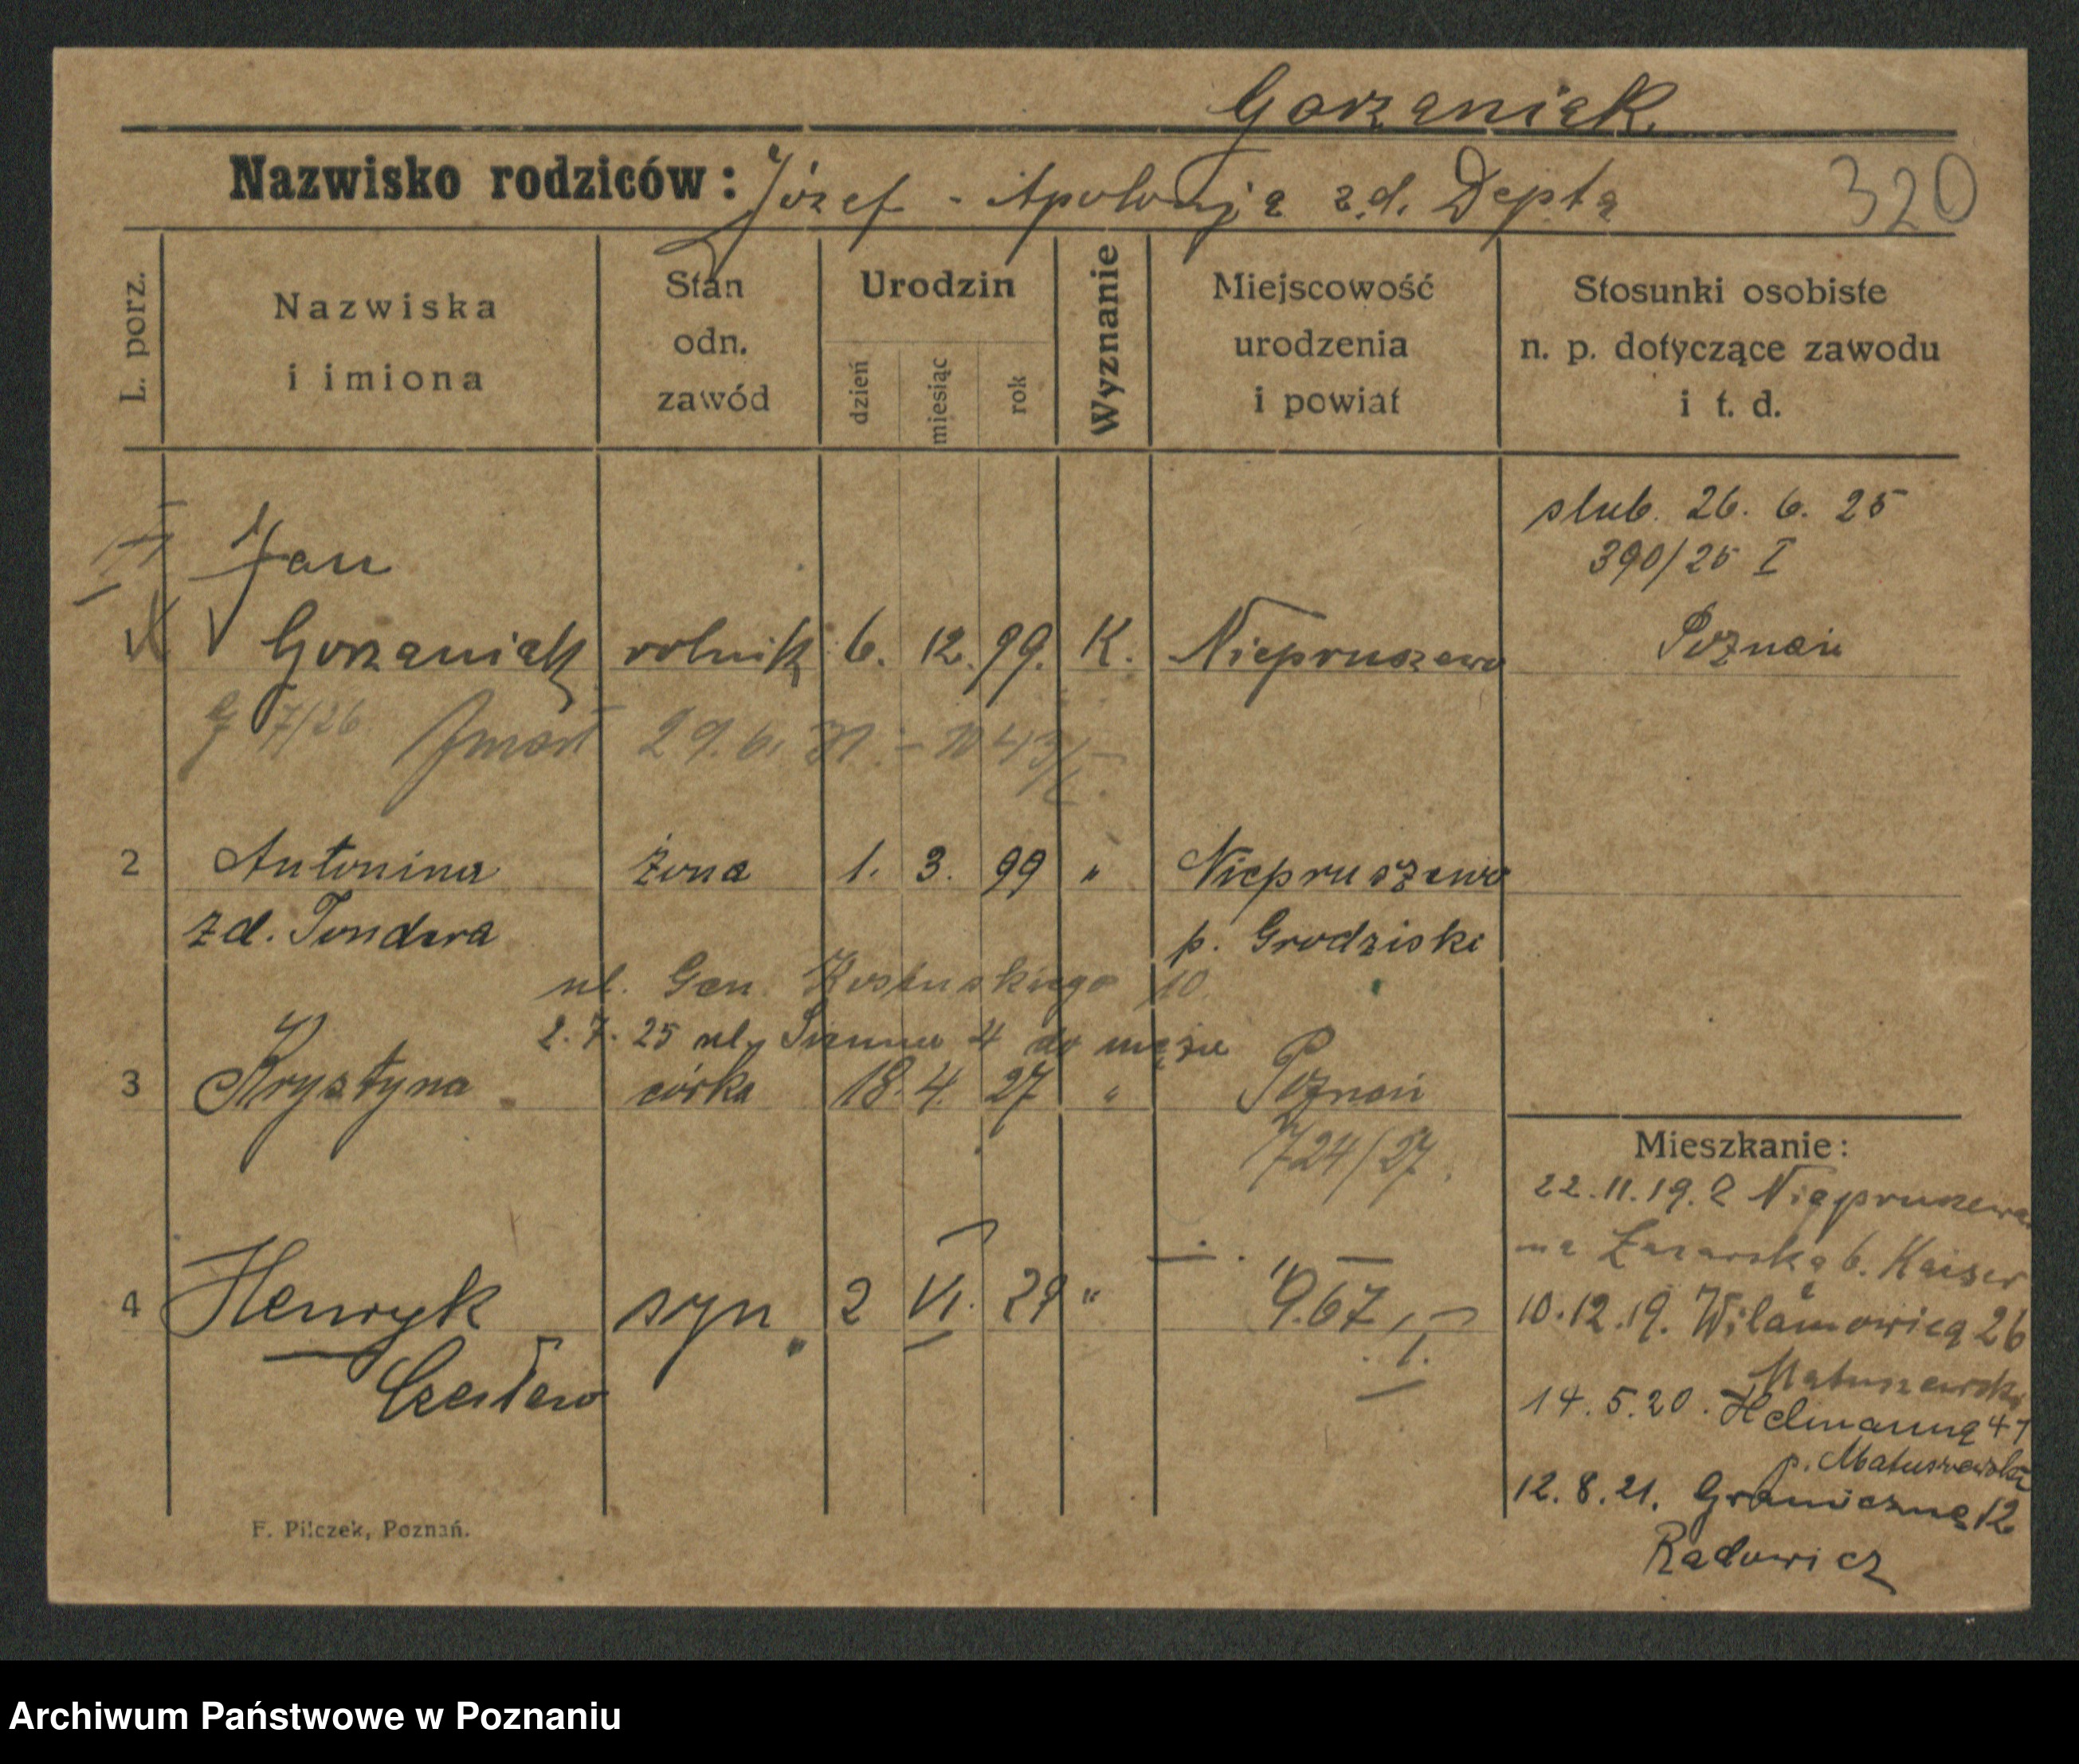 Gorzaniak
Nazwisko rodziców: Józef - Apolonja z.d. Depta
320
L. porz.
Nazwiska
i imiona
Stan
odn.
zawód
Urodzin
dzień
miesiąc
rok
Wyznanie
Miejscowość
urodzenia
i powiat
Stosunki osobiste
n. p. dotyczące zawodu
i t. d.
ślub. 26. 6. 25
390/25 I
Poznań
Jan
Gorzaniak rolnik 6. 12. 99. K. Niepruszewo
7/26 Zmarł 29. 6. 31. - 1043/I
2 Antonina żona 1. 3. 99 " Niepruszewo
zd. Tondera p. Grodziski
ul. Gen. 10
2. 7. 25 ul. 4 do męża
3 Krystyna córka 18. 4. 27 " Poznań
724/27.
4 Henryk syn 2 VI. 29 " 967, I.
Czesław
Mieszkanie:
22.11.19. z Niepruszewa
na Łazarską 6. Kaiser
10.12.19. Wilamowica 26
Matuszewska
14.5.20. 47
p. Matuszewska
12.8.21. Graniczna 12
Radowicz
F. Pilczek, Poznań.
Archiwum Państwowe w Poznaniu